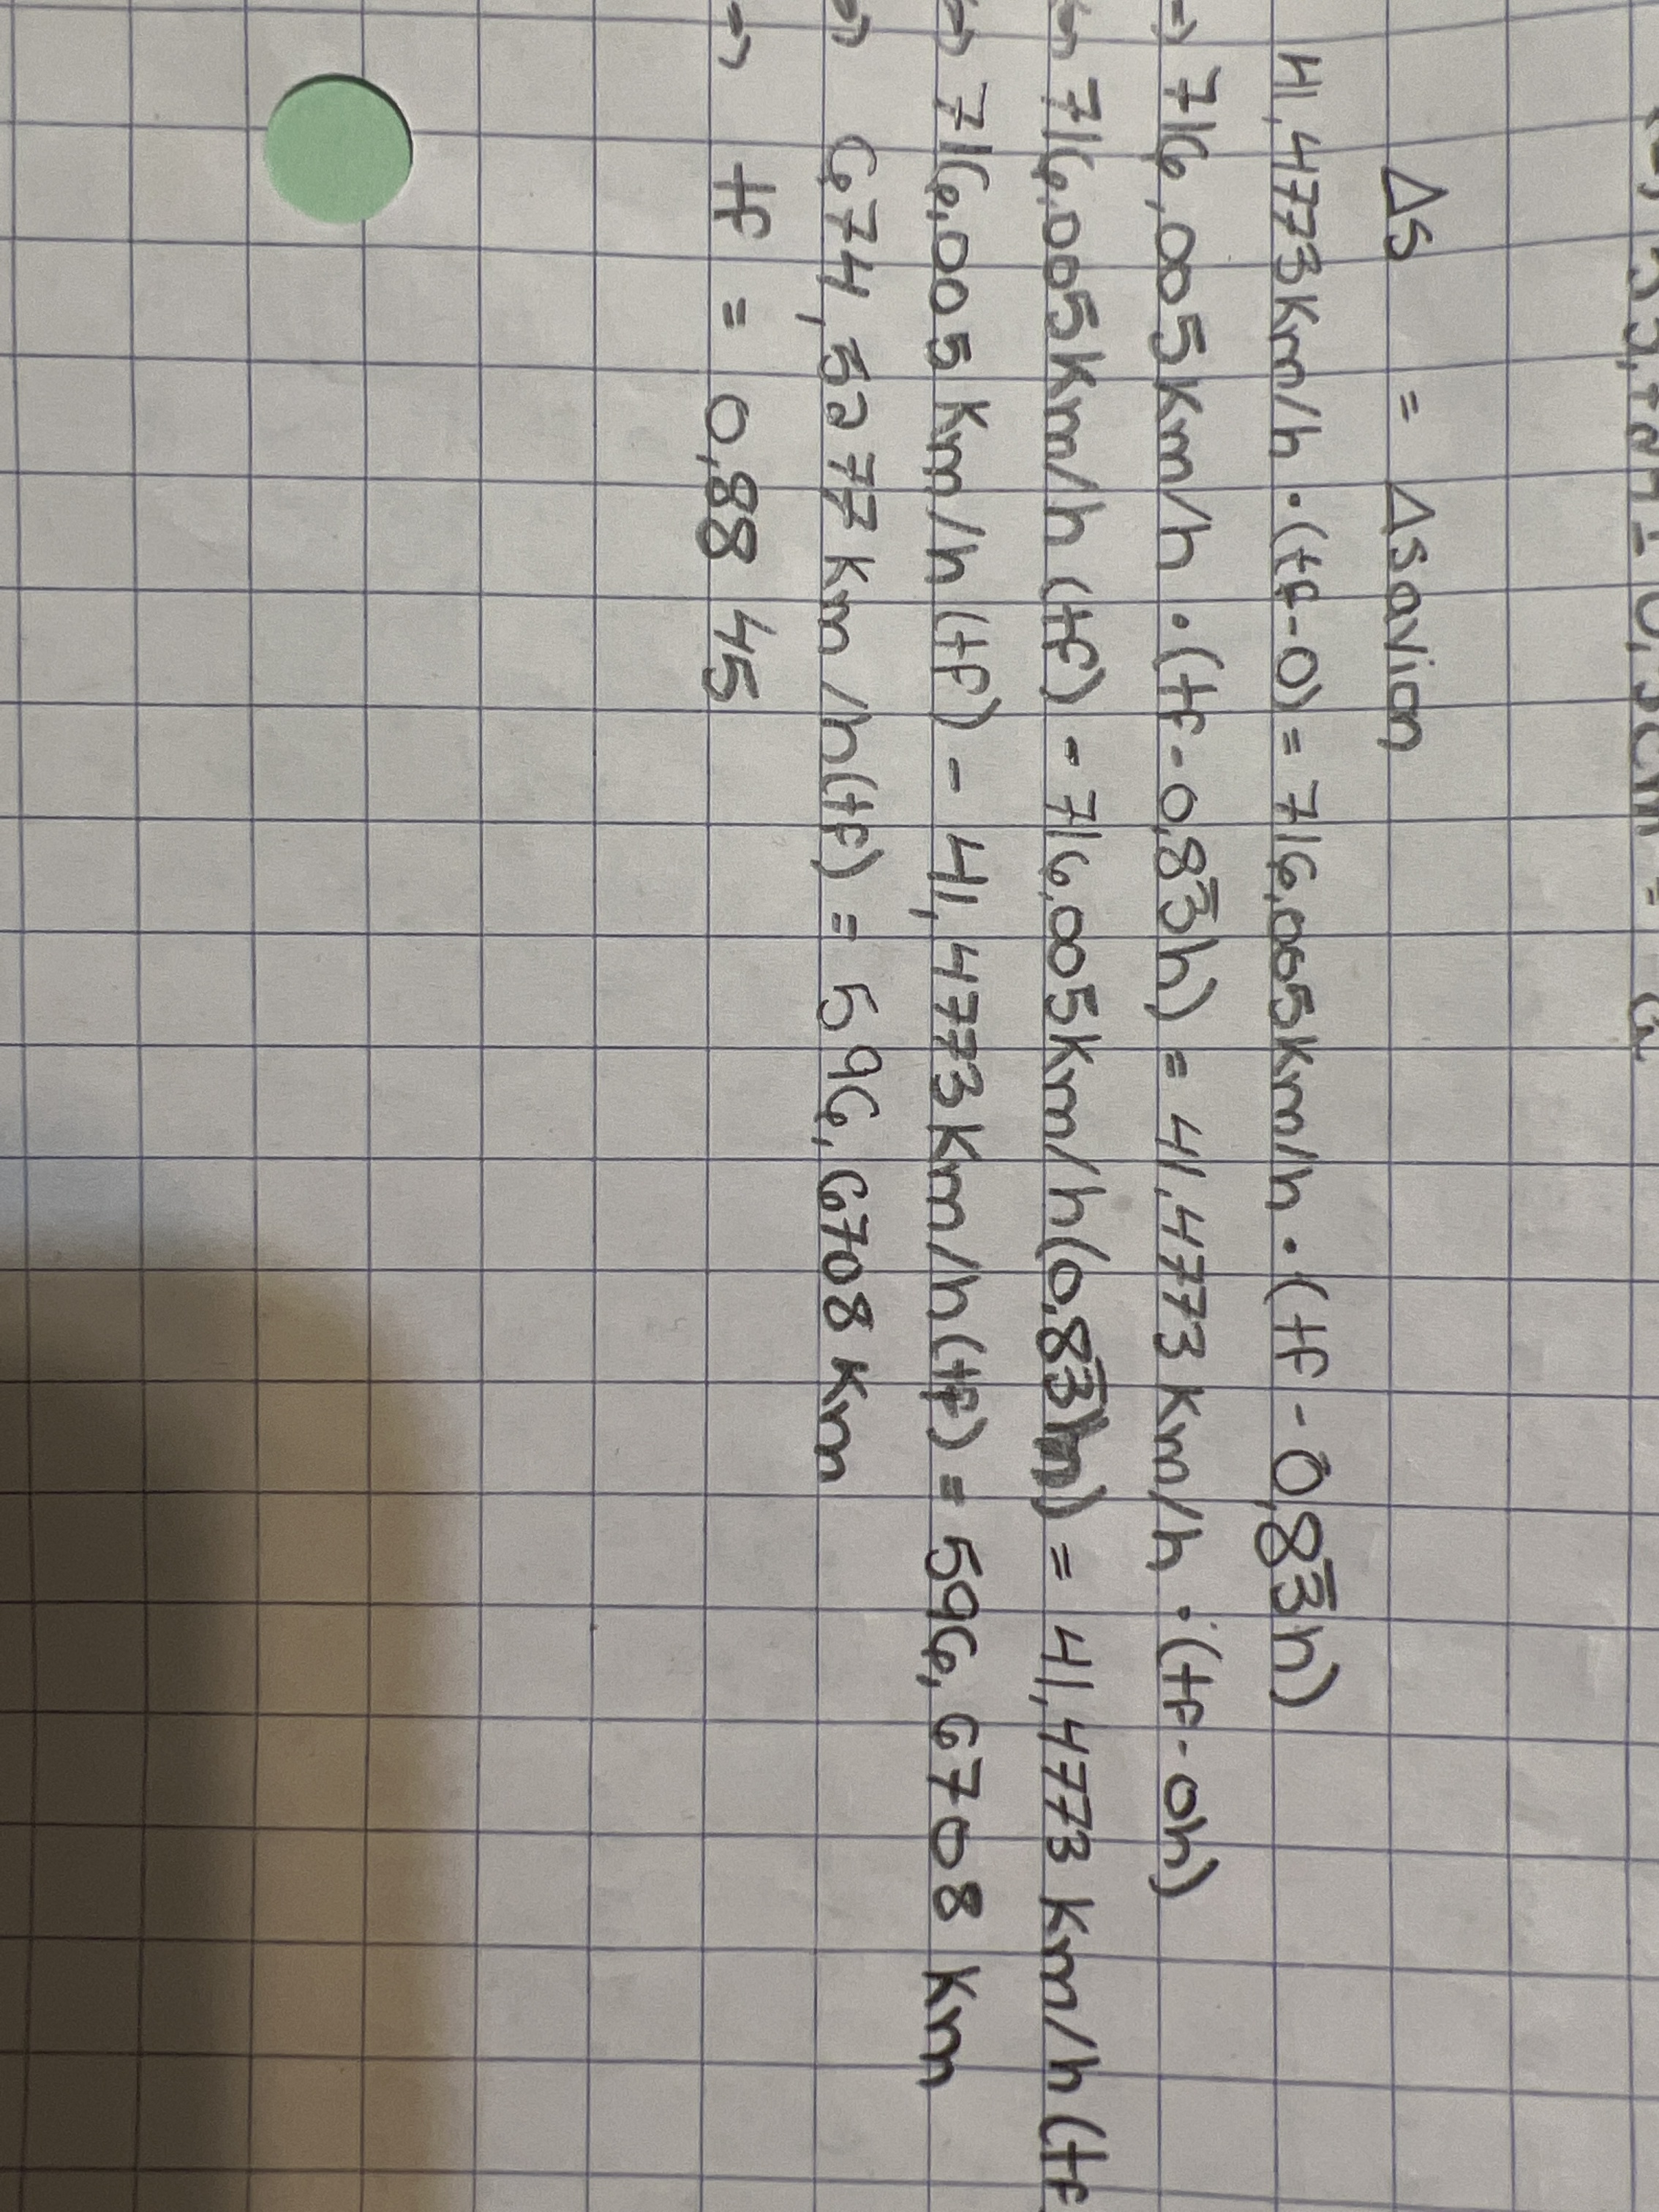 Δs = Δsavion
41,4773km/h · (tf-0) = 716,005km/h · (tf - 0,83̅h)
=> 716,005km/h · (tf - 0,83̅h) = 41,4773 km/h · (tf - 0h)
716,005km/h (tf) - 716,005km/h (0,83̅h) = 41,4773 km/h (tf
716,005 km/h (tf) - 41,4773km/h (tf) = 596,6708 km
674,5277 km/h(tf) = 596,6708 km
=> tf = 0,8845